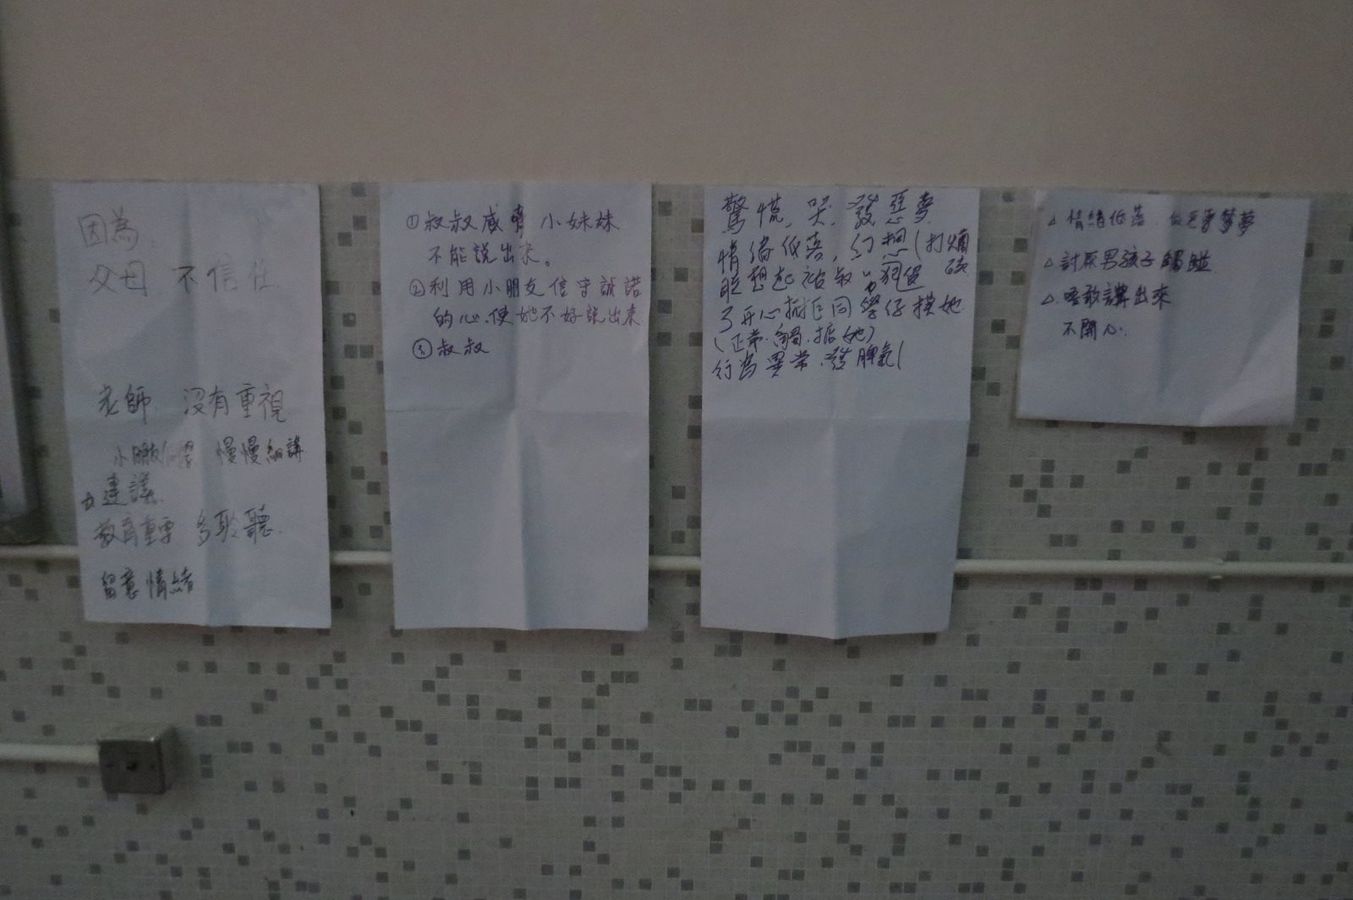 因為
父母 不信任
老師 沒有重視
慢慢細講
建議
教育重要 多聆聽
留意情緒
①叔叔威嚇 小妹妹
不能說出來。
②利用小朋友信守諾
的心、使她不好說出來
③叔叔
驚慌、哭、發惡夢
情緒低落,幻想(打爛碗
聯想起被叔
同學仔摸她
(正常 觸
行為異常、發脾氣
△ 情緒低落
△ 討厭男孩子觸碰
△ 唔敢講出來
不開心